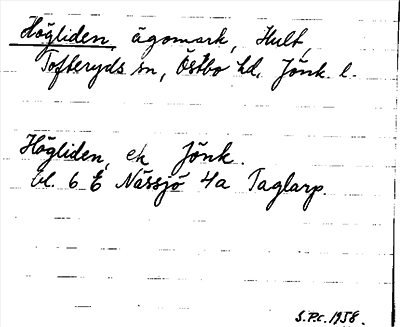 Högliden ägomark, Hult,
Tofteryds sn, Östbo hd. Jönk. l.
Högliden, ek Jönk.
bl. 6 E Nässjö 4a Taglarp
S.P.C. 1958.